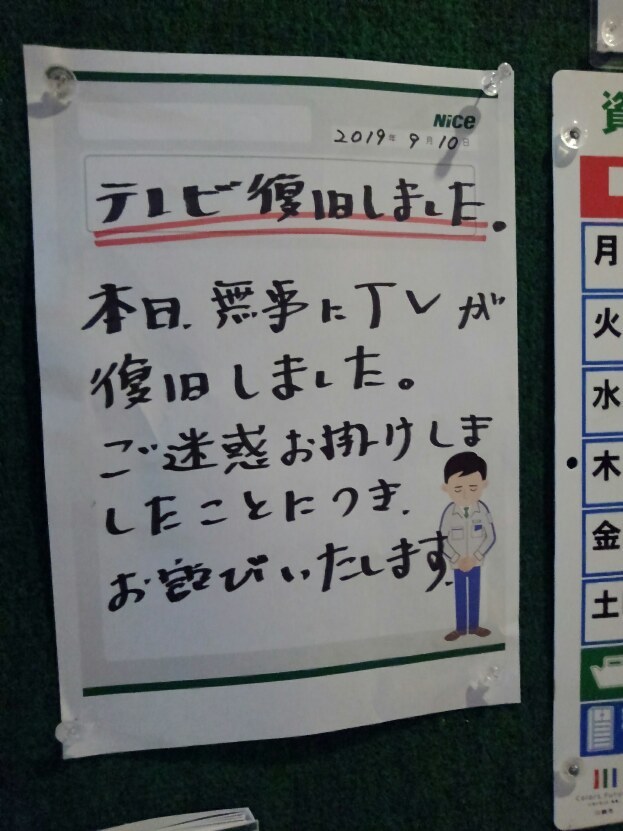 Nice
2019年 9月10日
テレビ復旧しました。
本日、無事にTVが
復旧しました。
ご迷惑お掛けしま
したことにつき、
お詫びいたします。
資
月
火
水
木
金
土